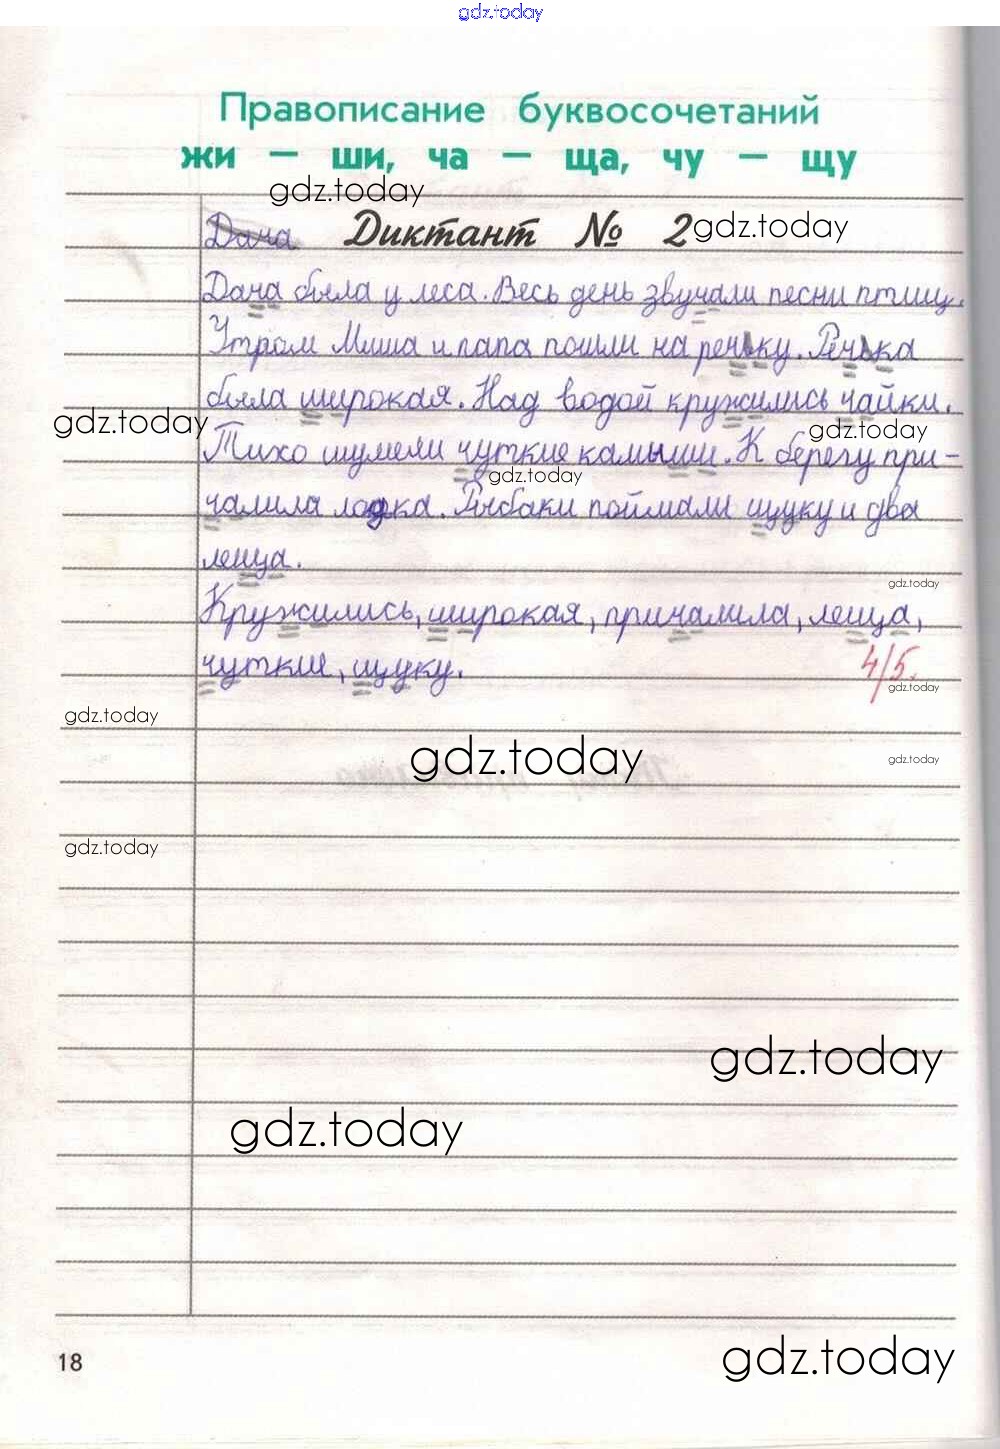 gdz.today
Правописание буквосочетаний
жи – ши, ча – ща, чу – щу
gdz.today
Дача Диктант № 2 gdz.today
Дача была у леса. Весь день звучали песни птиц.
Утром Миша и папа пошли на речку. Речка
была широкая. Над водой кружились чайки.
gdz.today gdz.today
Тихо шумели чуткие камыши. К берегу при-
gdz.today
чалила лодка. Рыбаки поймали щуку и два
леща.
gdz.today
Кружились, широкая, причалила, леща,
чуткие, щуку.
4/5.
gdz.today
gdz.today
gdz.today gdz.today
gdz.today
gdz.today
gdz.today
gdz.today
18